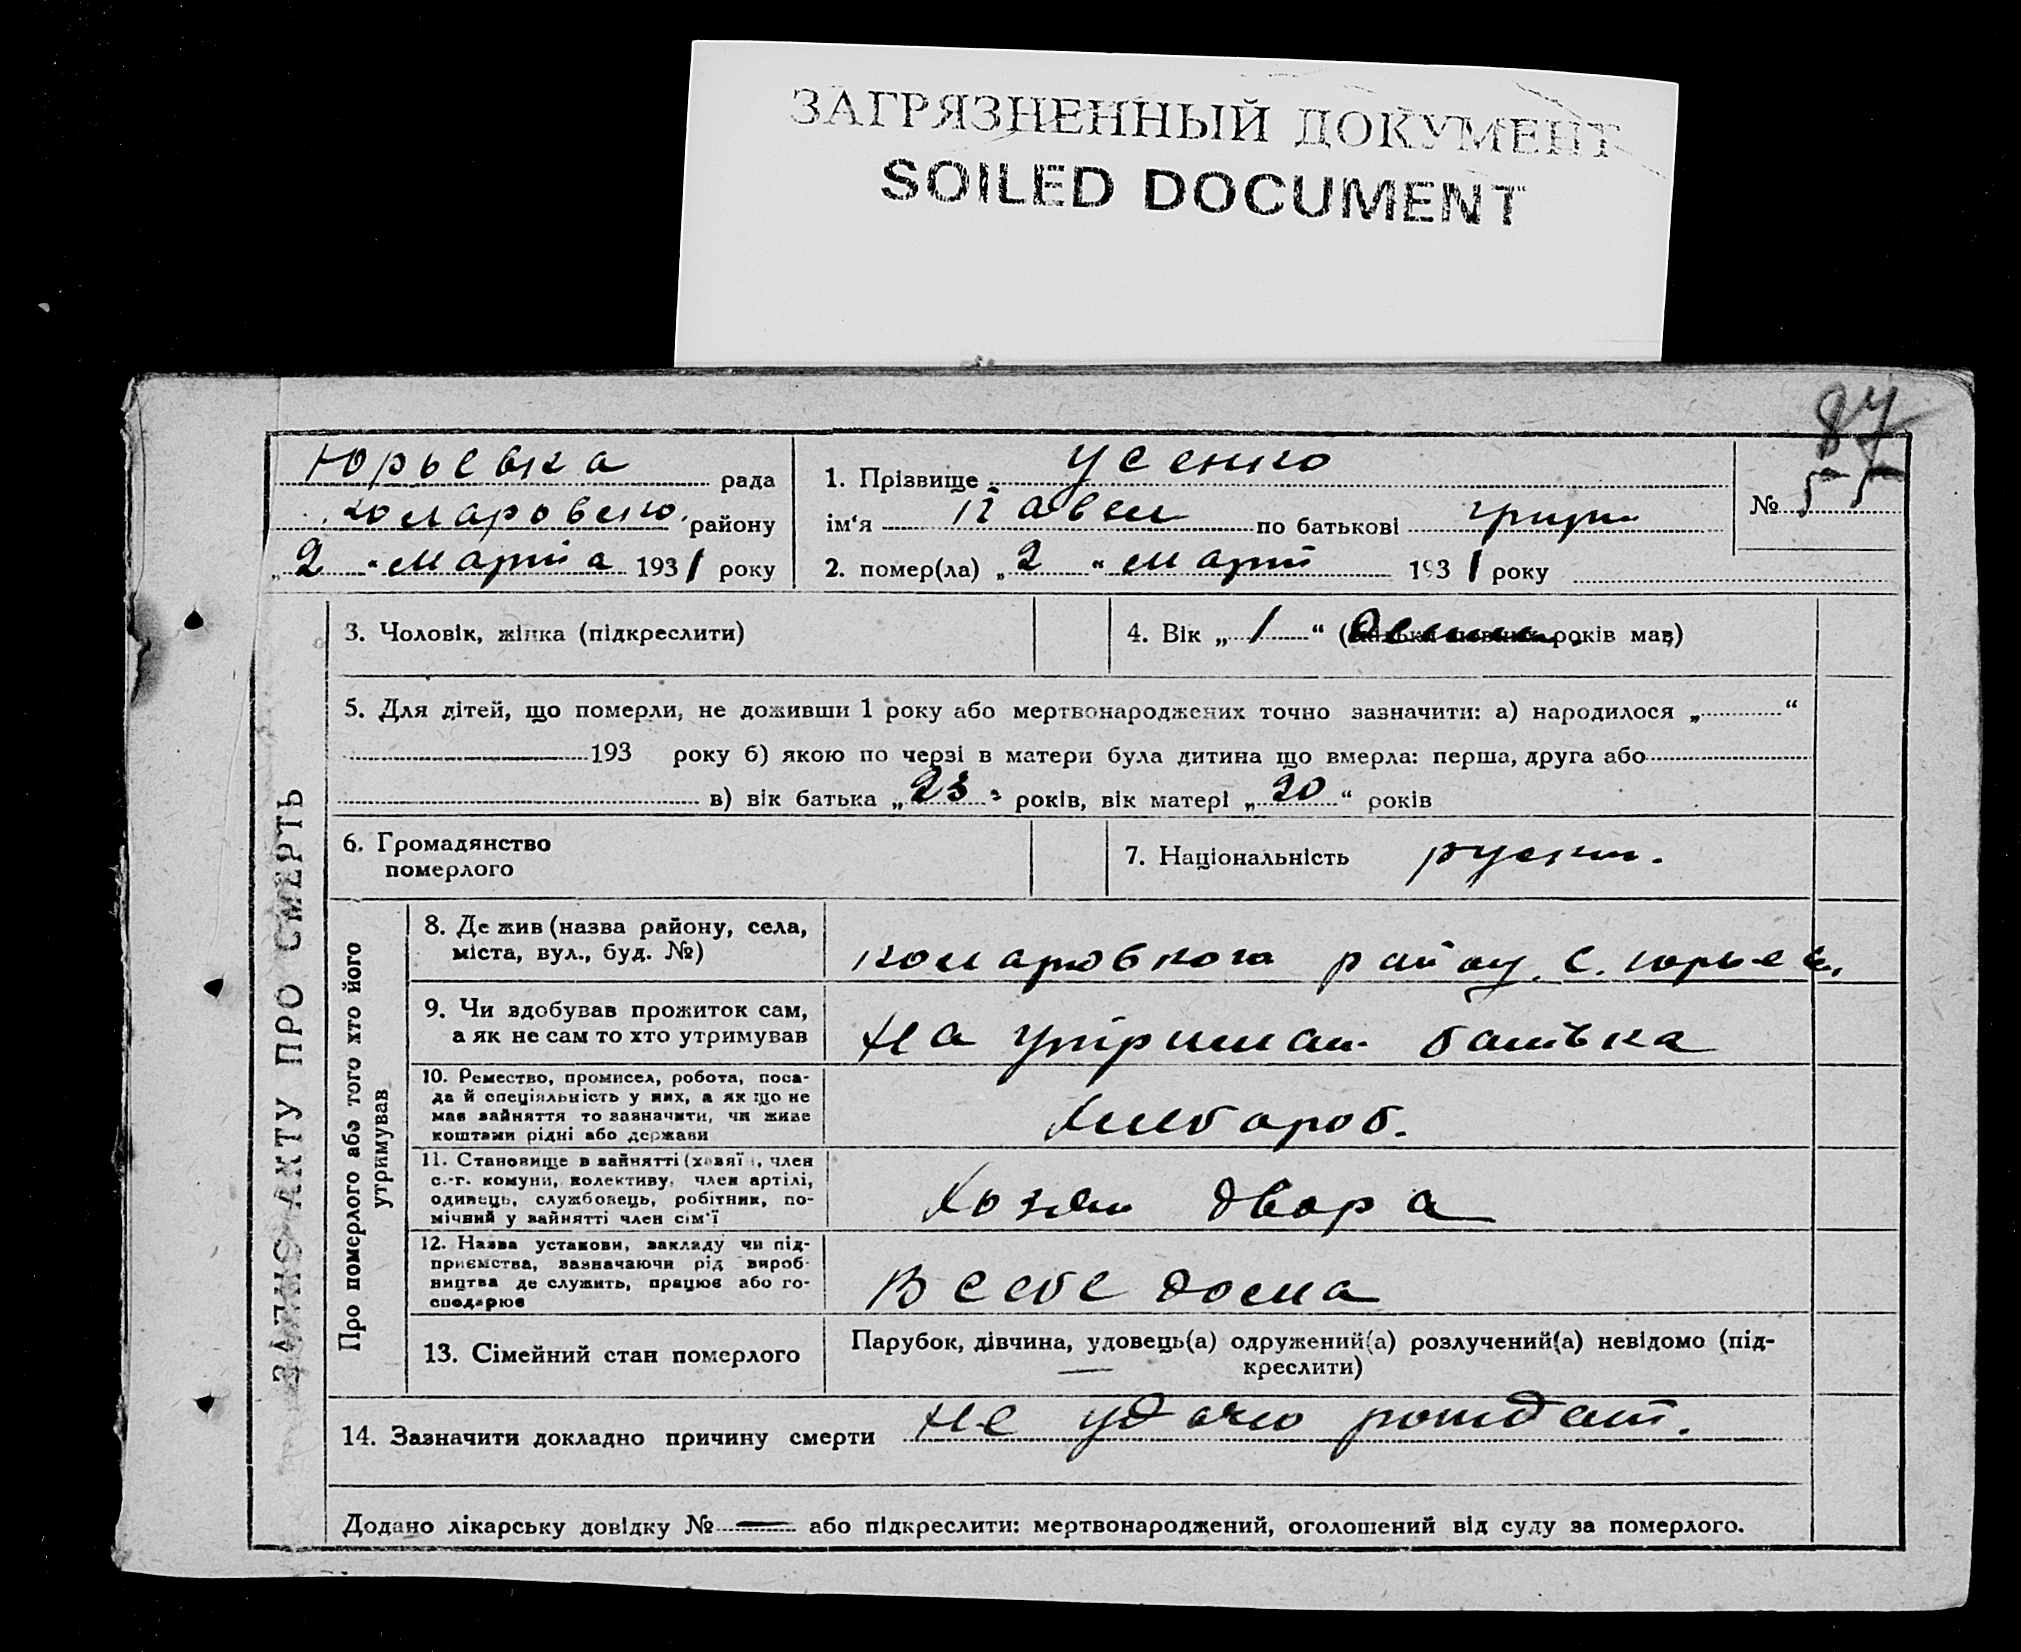 ЗАГРЯЗНЕННЫЙ ДОКУМЕНТ
SOILED DOCUMENT
87
Юрьевка рада
району
„2“ Марта 1931 року
1. Прізвище Усенко
ім‘я Павел по батькові
2. помер(ла) „2“ Март 1931 року
№ 55
3. Чоловік, жінка (підкреслити)
4. Вік „1“ років мав)
5. Для дітей, що померли, не доживши 1 року або мертвонароджених точно зазначити: а) народилося „ “
193 року б) якою по черзі в матери була дитина що вмерла: перша, друга або
в) вік батька „23“ років, вік матері „20“ років
6. Громадянство
померлого
7. Національність руский.
ЗАПИС АКТУ ПРО СМЕРТЬ
Про померлого або того хто його
утримував
8. Де жив (назва району, села,
міста, вул., буд. №)
9. Чи здобував прожиток сам,
а як не сам то хто утримував
На утриман. батька
10. Ремество, промисел, робота, поса-
да й спеціяльність у них, а як що не
має зайняття то зазначити, чи живе
коштами рідні або держави
Хлебароб.
11. Становище в зайнятті (хазяїн, член
с.-г. комуни, колективу, член артілі,
одинець, службовець, робітник, по-
мічний у зайнятті член сім'ї
Хозяин двора
12. Назва установи, закладу чи під-
приємства, зазначаючи рід вироб-
ництва де служить, працює або го-
сподарює
В себе дома
13. Сімейний стан померлого
Парубок, дівчина, удовець(а) одружений(а) розлучений(а) невідомо (під-
креслити)
14. Зазначити докладно причину смерти Не удачно
Додано лікарську довідку № — або підкреслити: мертвонароджений, оголошений від суду за померлого.